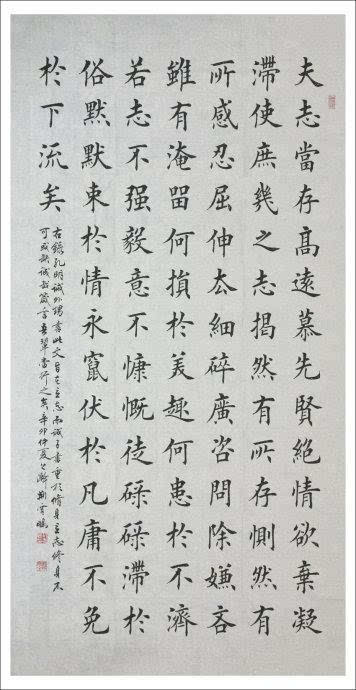 夫志當存髙遠慕先賢絕情欲棄凝
滯使庶幾之志揭然有所存惻然有
所感忍屈伸厺細碎廣咨問除嫌吝
雖有淹留何損於美趣何患於不濟
若志不强毅意不慷慨徒碌碌滯於
俗默默束於情永竄伏於凡庸不免
於下流矣
右錄孔明誡外甥書此文旨在立志而誡子書重於脩身立志修身不
可或缺誠哉箴言吾輩當行之矣辛卯仲夏